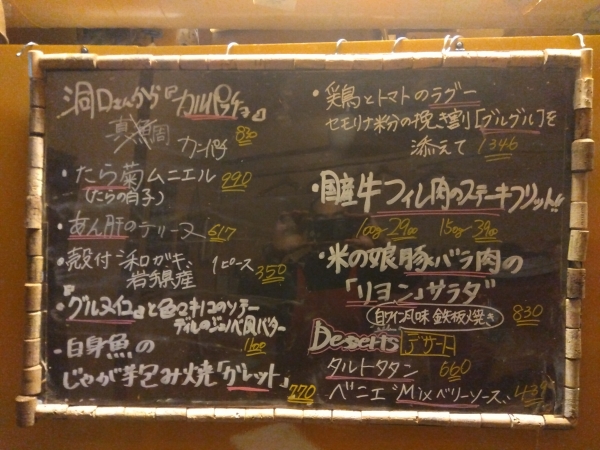 洞口さんから『カルパッチョ』
真鯛
カンパチ 830
・たら菊ムニエル 990
(たらの白子)
・あん肝のテリーヌ 617
・殻付 活ガキ、
岩手県産 1ピース 350
・『グルヌイユ』と色々キノコのソテー
デルのジェノベ風バター
1600
・白身魚の
じゃが芋包み焼「ガレット」 770
・ホロホロ鳥とトマトのラグー
セモリナ粉の挽き割[ブルグル]を
添えて 1346
・国産牛フィレ肉のステーキフリット!!
100g 2900 150g 3900
・米の娘豚バラ肉の
「リヨン」サラダ
白ワイン風味 鉄板焼き 830
Desserts デザート
タルトタタン 660
ベニエ "Mixベリーソース" 439